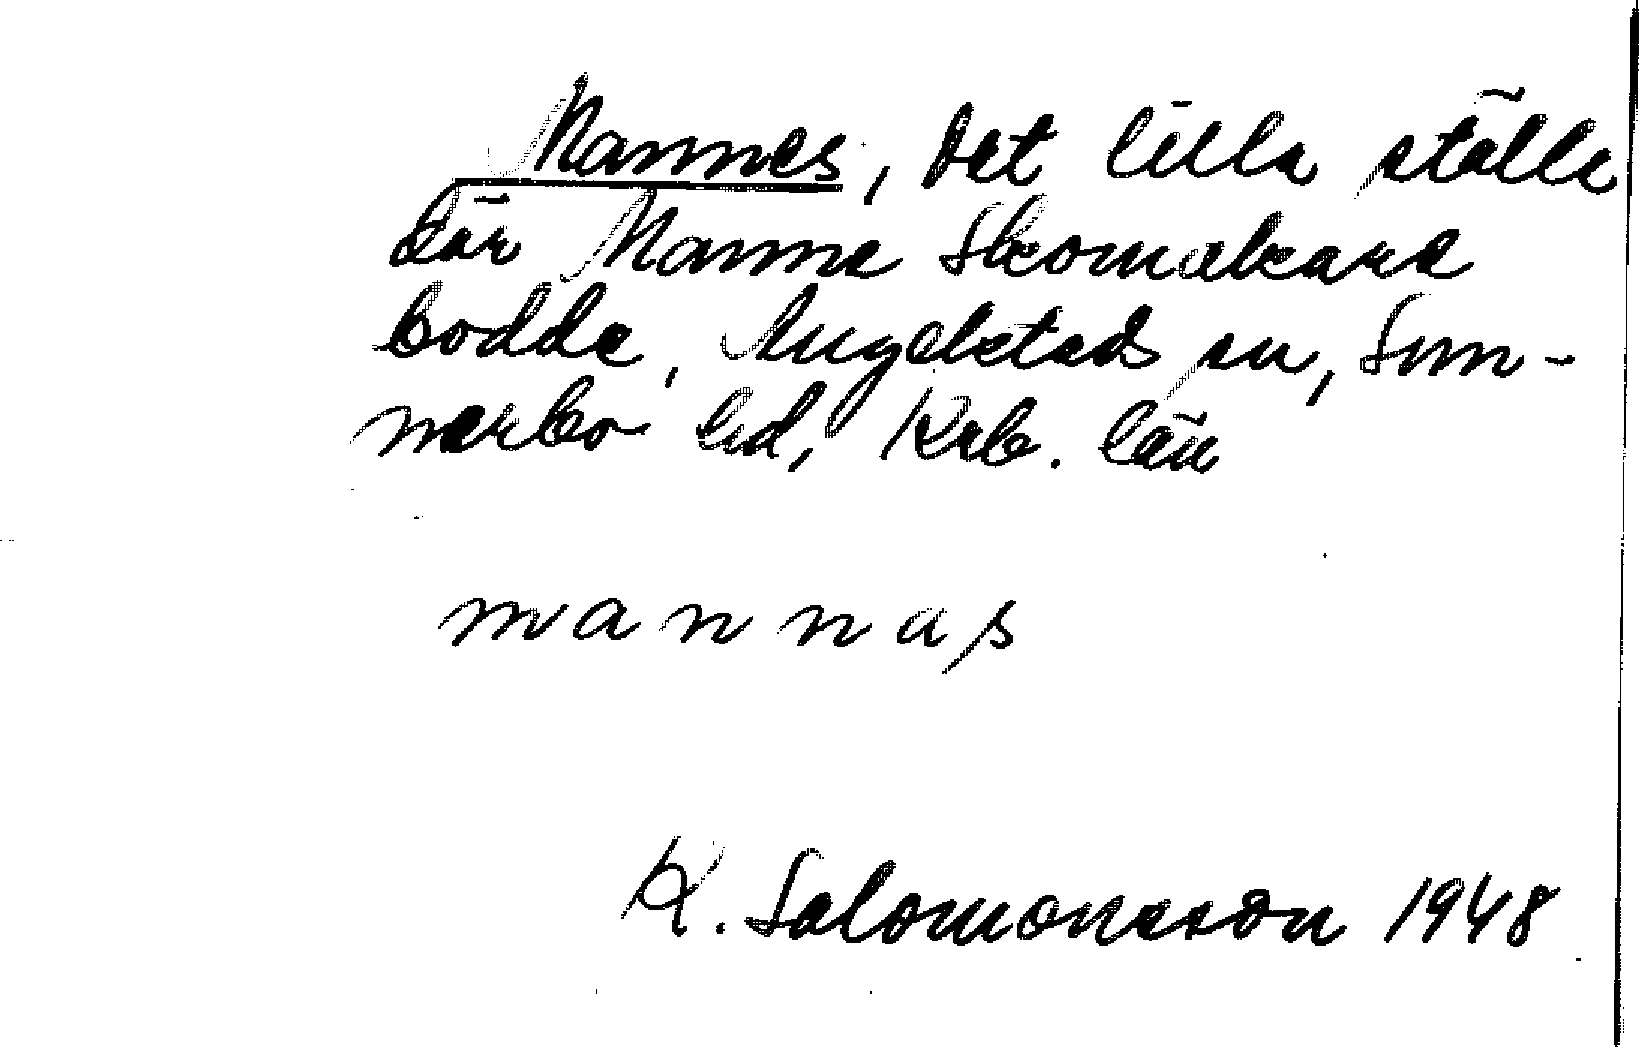 Mannes, det lilla ställe
där Manne Skomakare
bodde, Angelstads sn, Sun-
nerbo hd, Krb. län
mannas
K. Salomonsson 1948